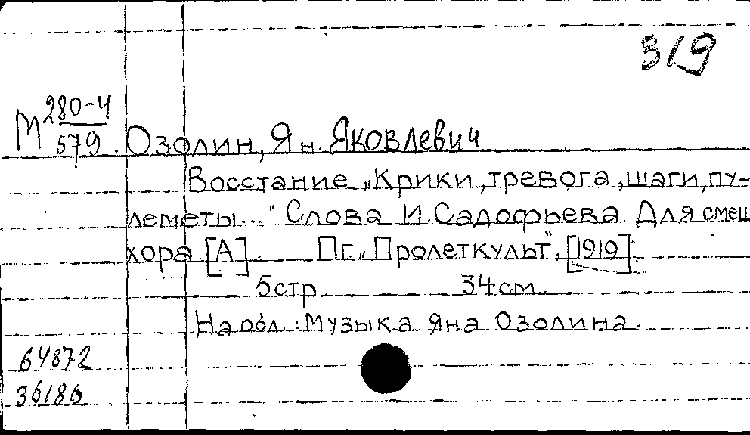 319
М 280-4/579. Озолин, Ян. Яковлевич
Восстание „Крики, тревога, шаги, пу-
леметы..." Слова И. Садофьева. Для смеш
хора [А] Пг. „Пролеткульт", [1919]
5стр. 34см.
На обл.: Музыка Яна Озолина.
64872
36186